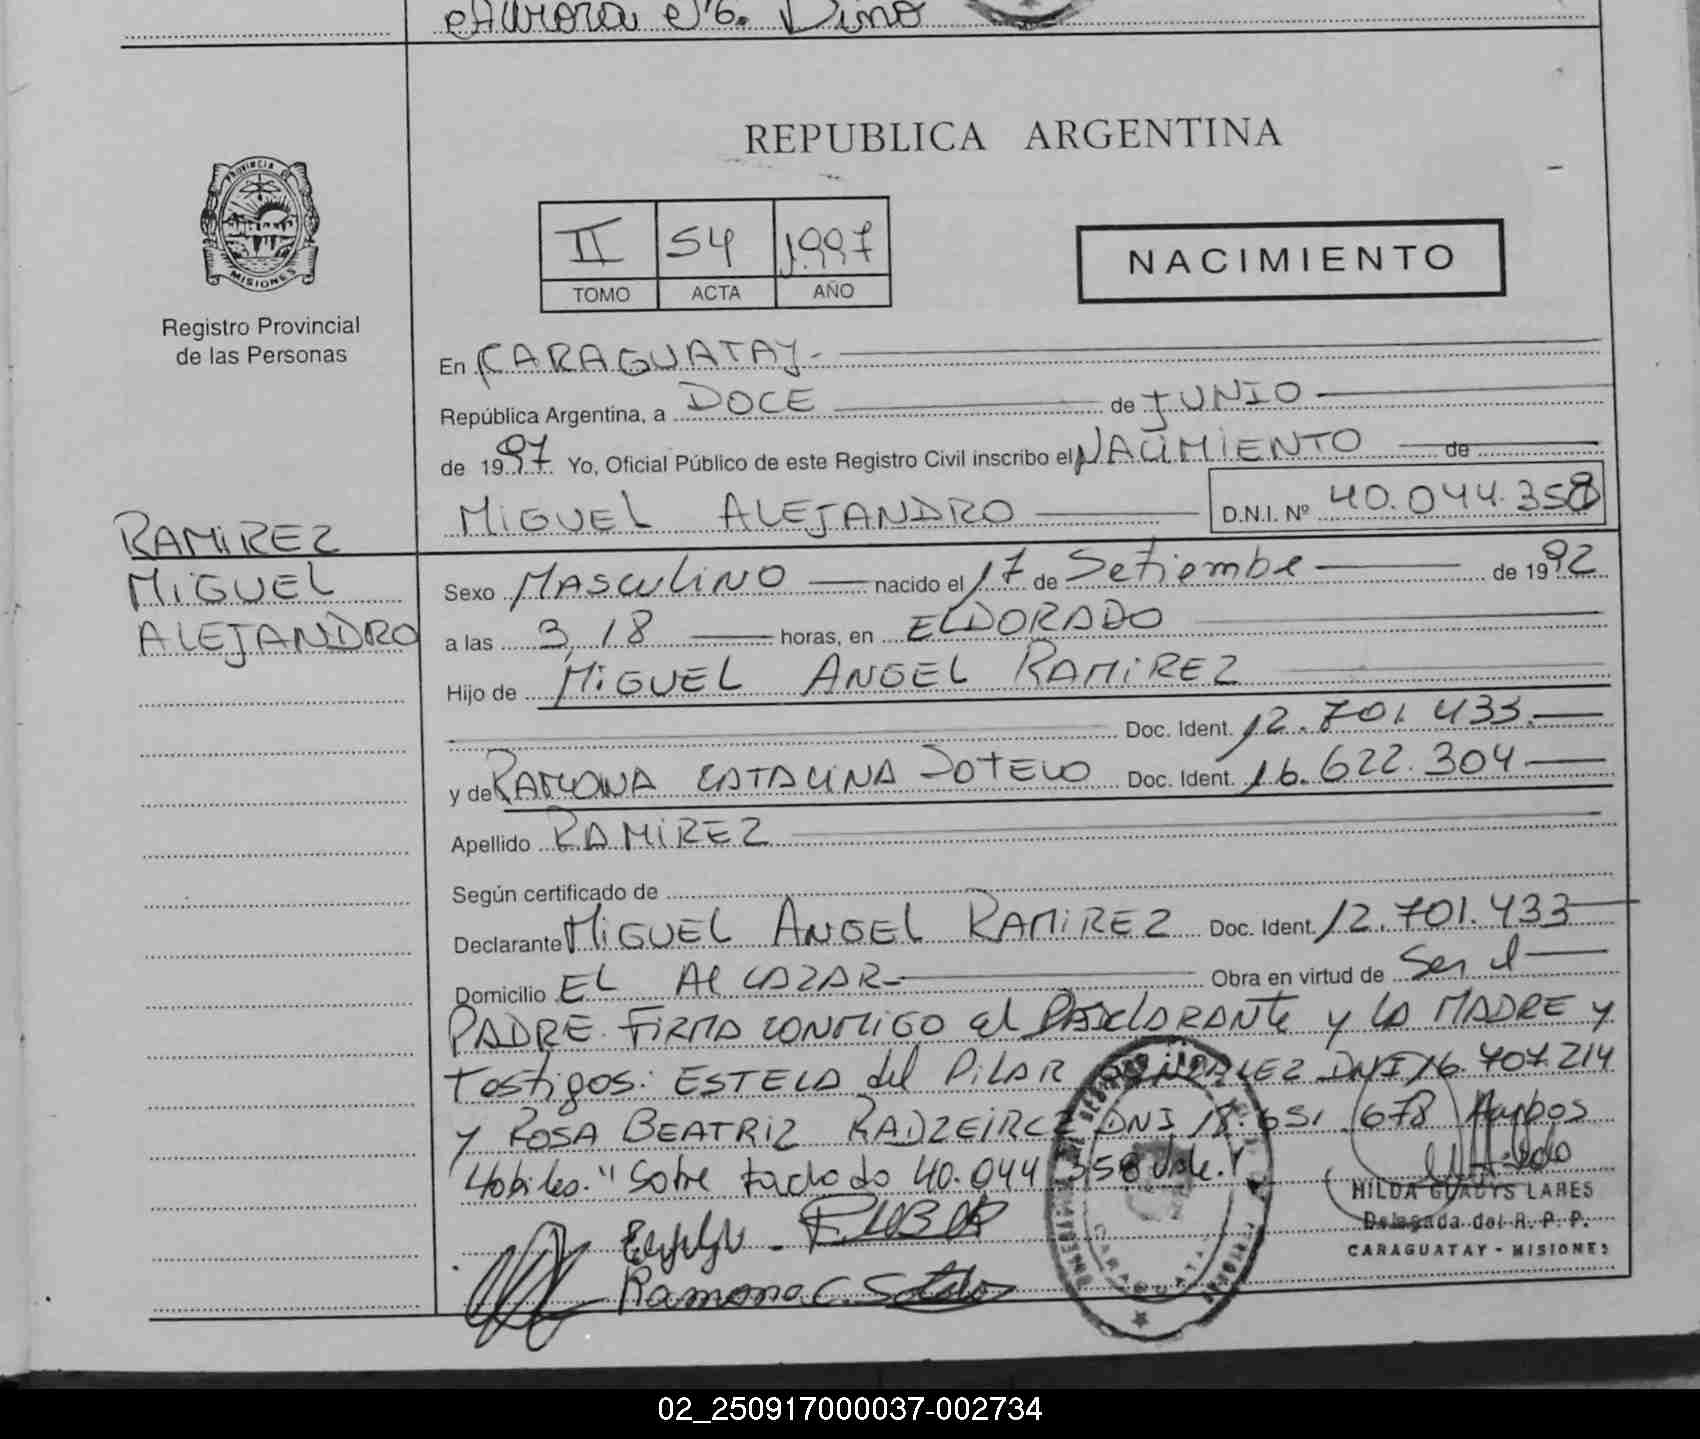 REPUBLICA ARGENTINA
PROVINCIA DE
MISIONES
Registro Provincial
de las Personas
II 54 1997
TOMO ACTA AÑO
NACIMIENTO
En CARAGUATAY.-
República Argentina, a DOCE de JUNIO
de 1997. Yo, Oficial Público de este Registro Civil inscribo el NACIMIENTO de
MIGUEL ALEJANDRO D.N.I. Nº 40.044.358
RAMIREZ
MIGUEL
ALEJANDRO
Sexo MASCULINO nacido el 17 de Setiembe de 1992
a las 3,18 horas, en ELDORADO
Hijo de MIGUEL ANGEL RAMIREZ
Doc. Ident. 12.701.433.
y de RAMONA CATALINA SOTELO Doc. Ident. 16.622.304
Apellido RAMIREZ
Según certificado de
Declarante MIGUEL ANGEL RAMIREZ Doc. Ident. 12.701.433
Domicilio EL ALCAZAR- Obra en virtud de Ser el
PADRE. FIRMA CONMIGO el DECLARANTE y LA MADRE y
Testigos: ESTELA del PILAR GONZALEZ DNI 16.707.214
y ROSA BEATRIZ DNI 18.651.678 Ambos
Hobiles. "Sobre tachado 40.044.358 Vale."
Ramona C. Sotelo
HILDA GLADYS LARES
Delegada del R. P. P.
CARAGUATAY - MISIONES
02_250917000037-002734